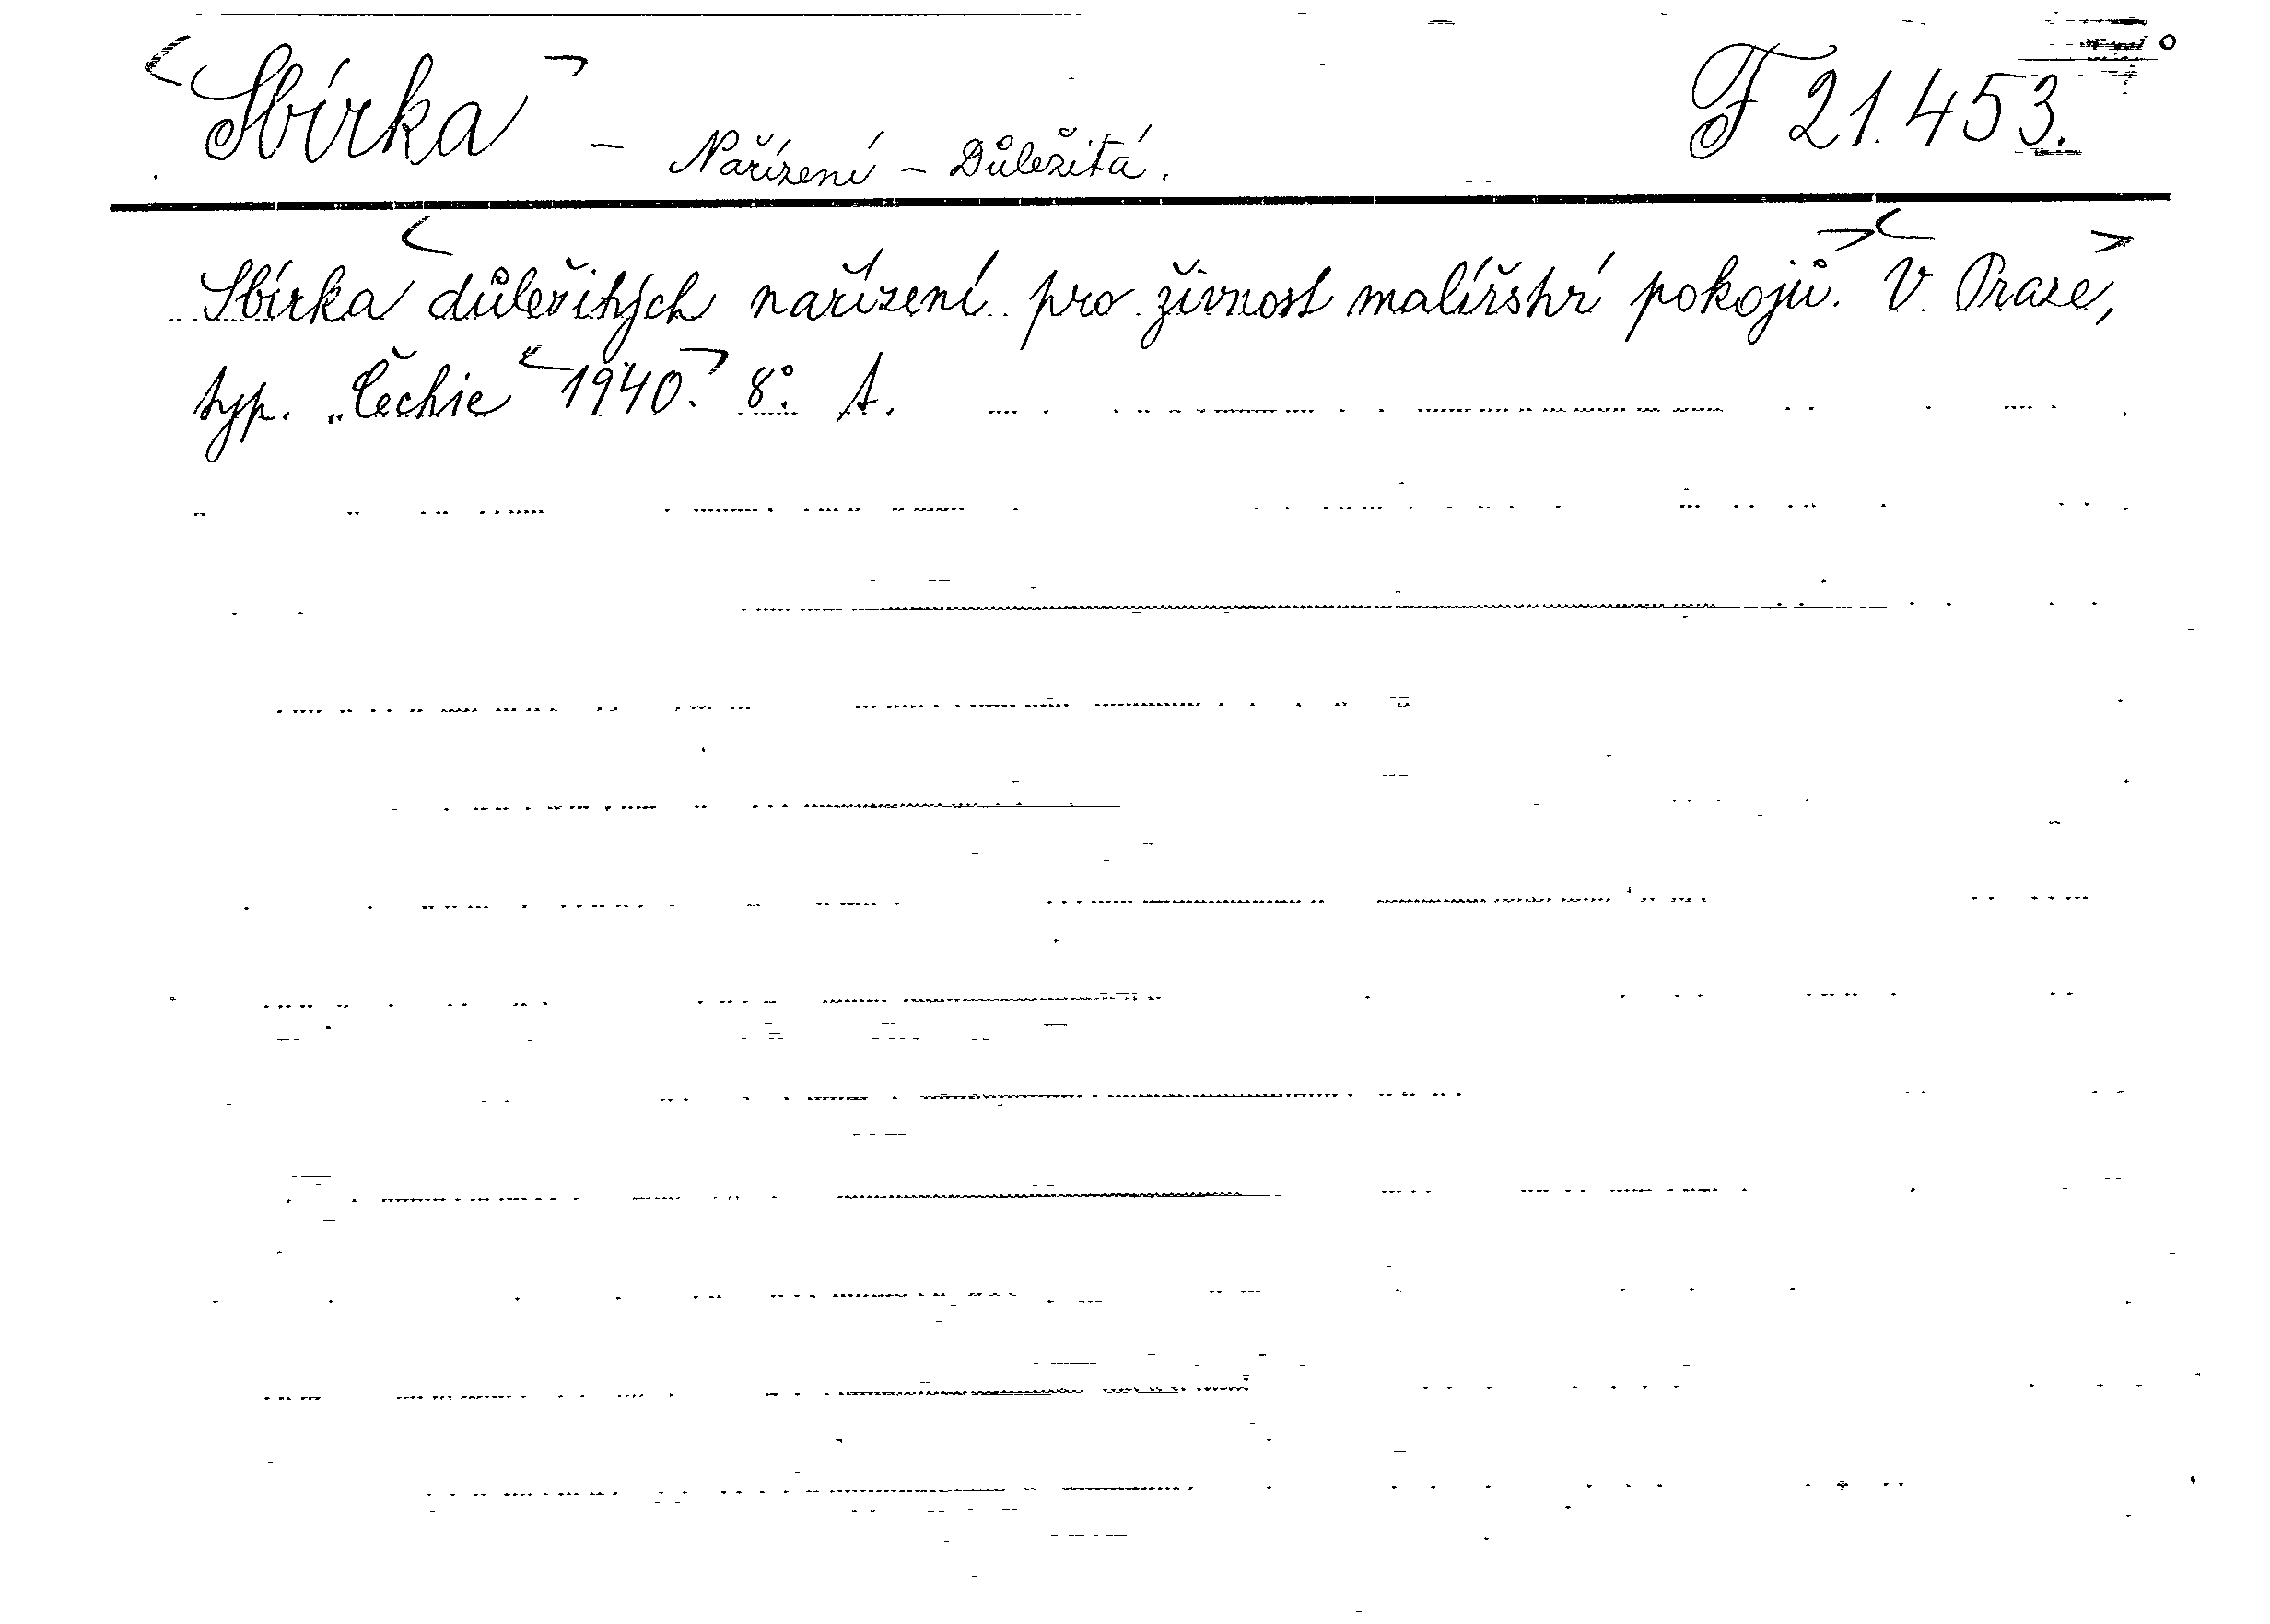 Sbírka – Nařízení – Důležitá. F 21.453.
Sbírka důležitých nařízení pro živnost malířství pokojů. V Praze,
typ. „Čechie“ 1940. 8°. A.